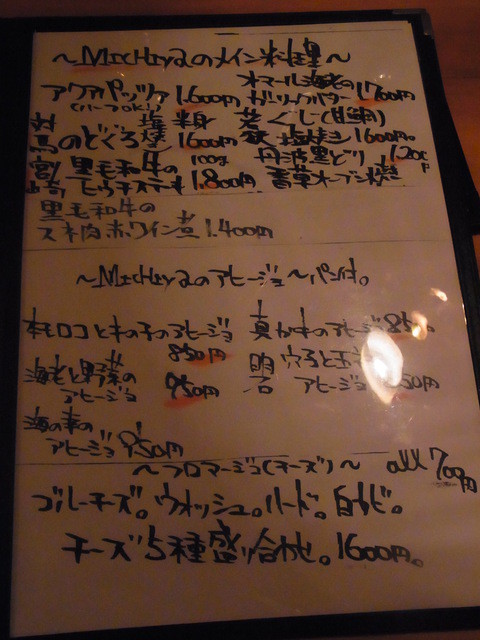 ～MICHIYAのメイン料理～
アクアパッツァ 1600円
(ハーフok!)
オマール海老の
ガーリックバター 1700円
対馬のどぐろ 塩焼 半身 1600円
甘鯛
塩焼き 1600円。
宮崎 黒毛和牛の 100g
ステーキ 1.800円
丹波黒どり 1200円
香草オーブン焼
黒毛和牛の
スネ肉赤ワイン煮 1.400円
～MICHIYAのアヒージョ～パン付。
キノコと木の子のアヒージョ
850円
真かきのアヒージョ 850円
海老と野菜の
アヒージョ 950円
明石 穴子と玉
アヒージョ 50円
海の幸の
アヒージョ 950円
～フロマージュ(チーズ)～ all 700円
ブルーチーズ。ウォッシュ。ハード。白カビ。
チーズ5種盛り合わせ。1600円。